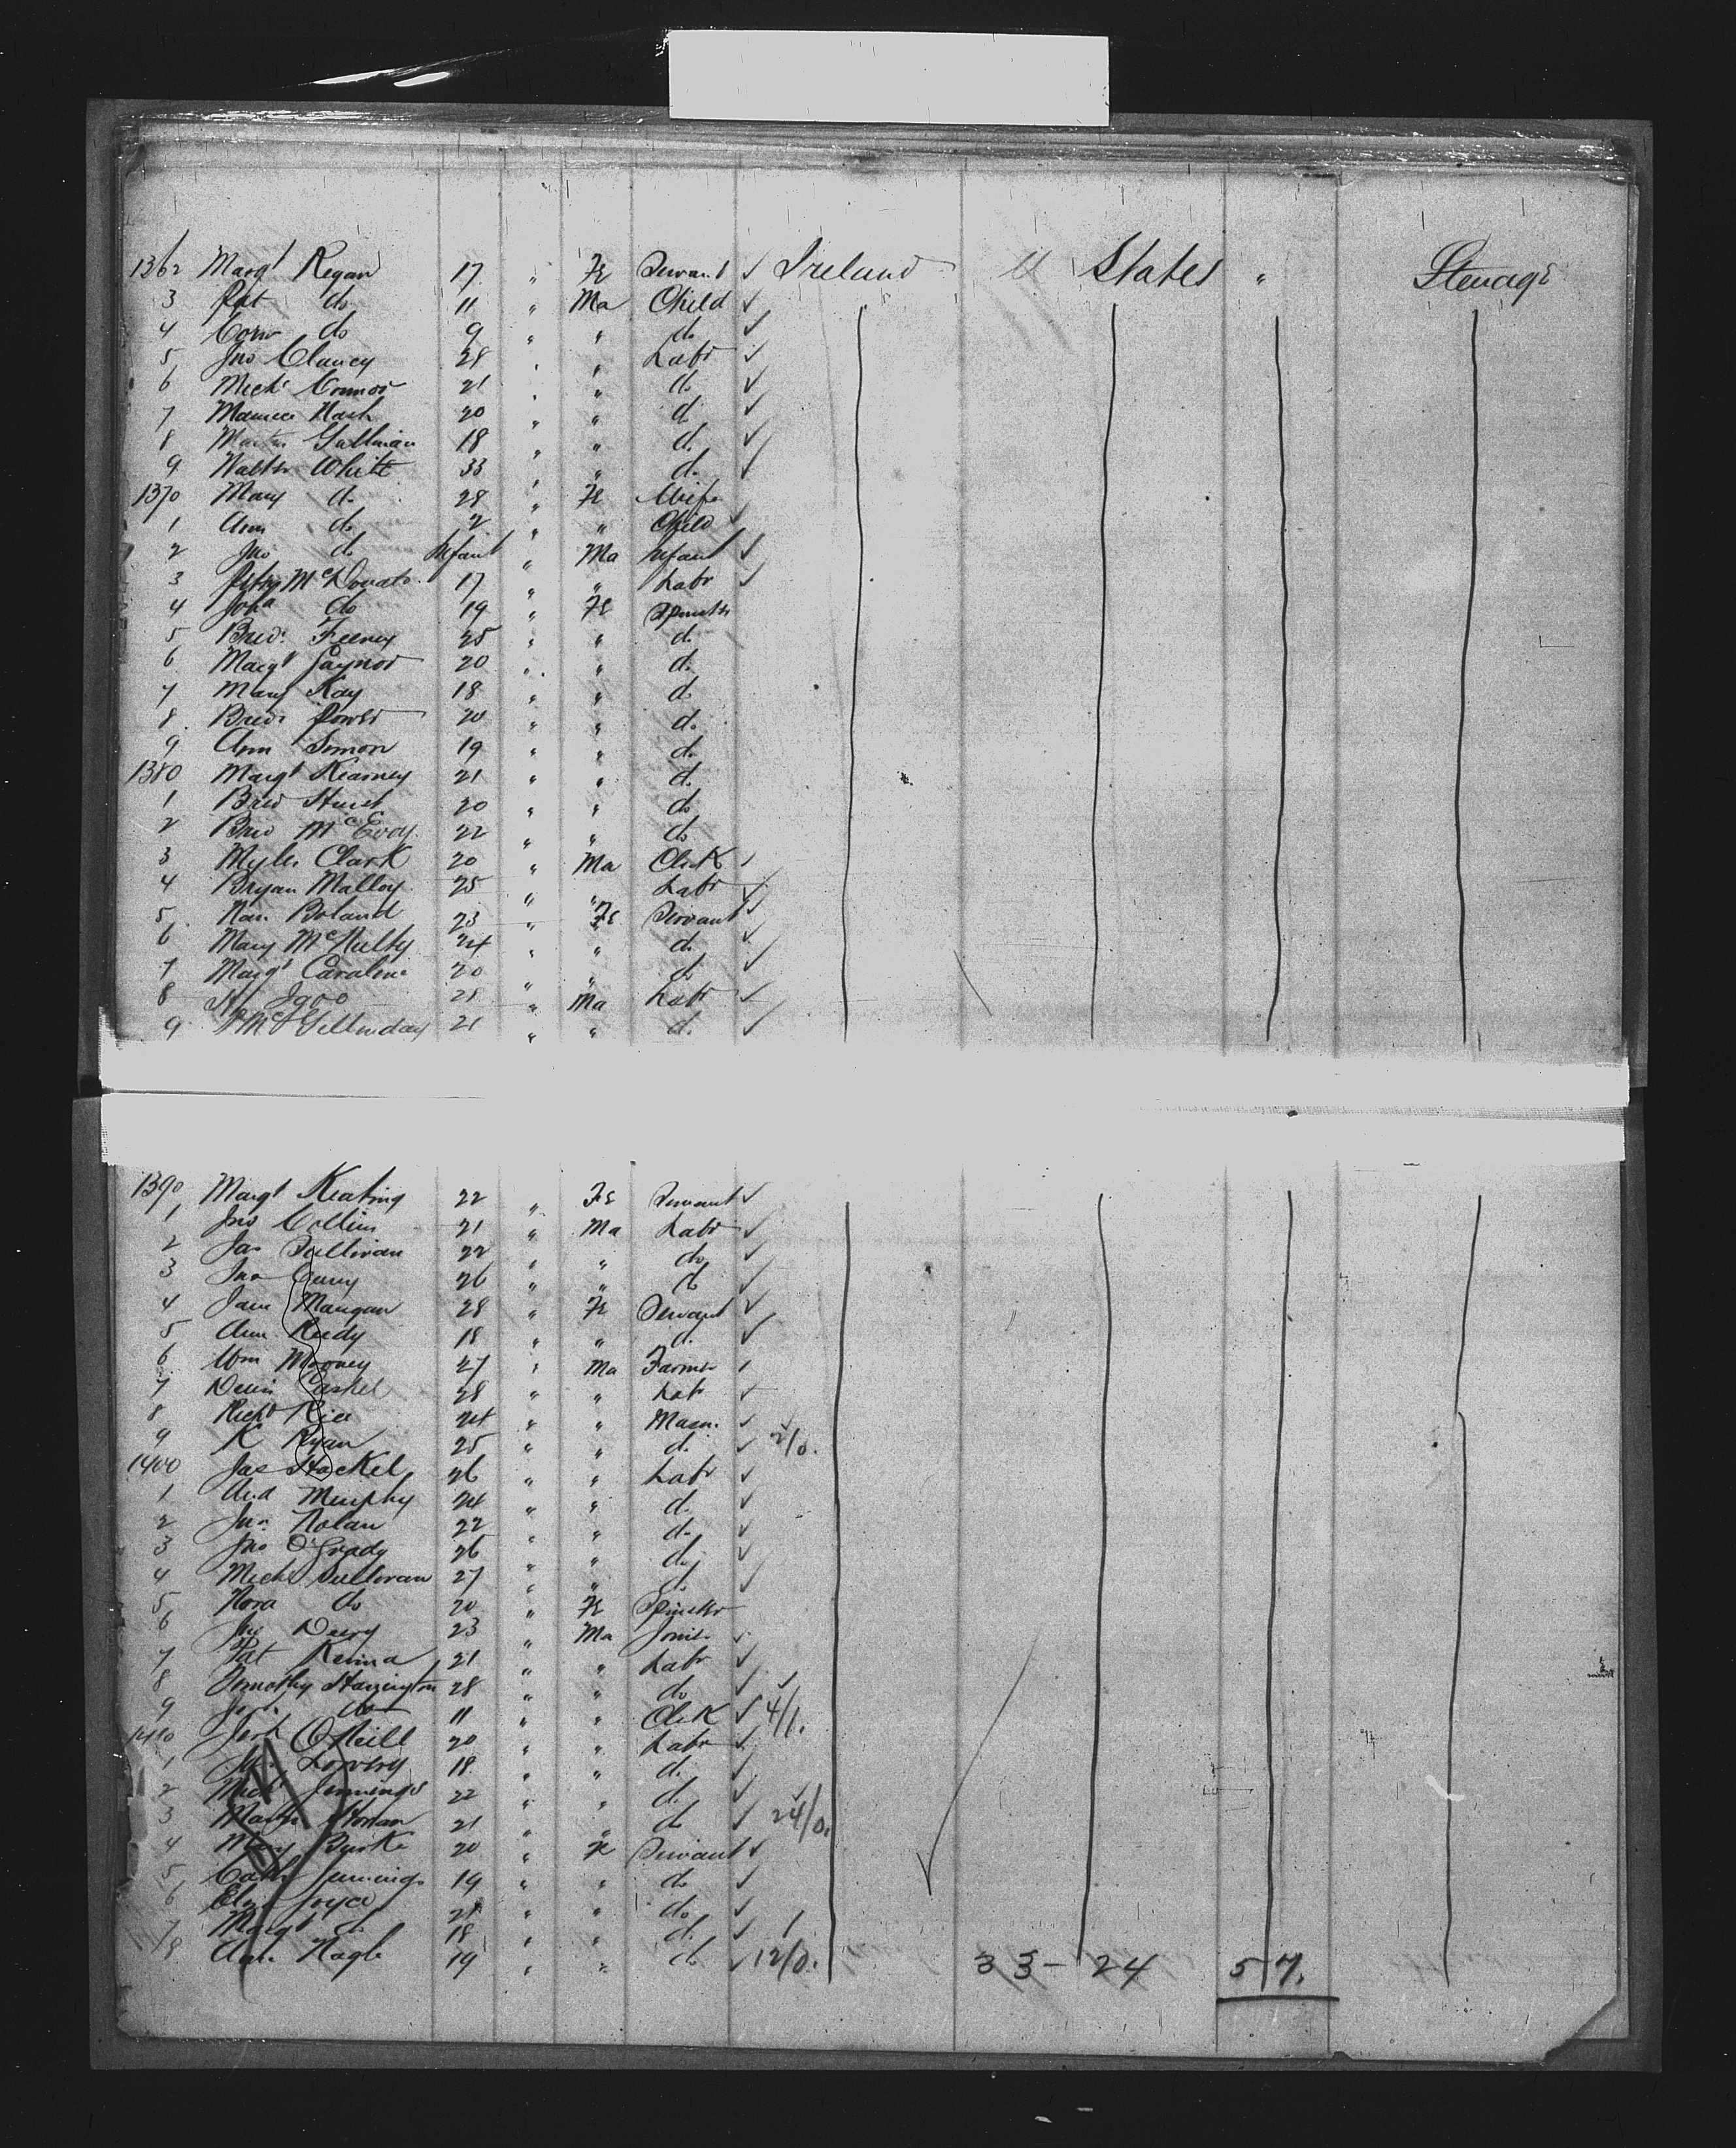 1362 Margt Regan 17 " Fe Servant ✓ Ireland U States " Steerage
3 Pat do 11 " Ma Child ✓
4 Corns do 9 " " do ✓
5 Jno Clancy 28 " " Labr ✓
6 Michl Connor 21 " " do ✓
7 Maurice Nash 20 " " do ✓
8 Martin 18 " " do ✓
9 Walter White 33 " " do ✓
1370 Mary do 28 " Fe Wife
1 Ann do 2 " " Child ✓
2 Jno do Infant " Ma Infant ✓
3 17 " " Labr ✓
4 Joha do 19 " Fe Spinster
5 Brid. Feeney 25 " " do
6 Margt Gaynor 20 " " do
7 Mary Kay 18 " " do
8 Brid. Power 20 " " do
9 Ann 19 " " do
1380 Margt Kearney 21 " " do
1 Brid 20 " " do
2 Brid McEvoy 22 " " do
3 Myles Clark 20 " Ma Clerk ✓
4 Bryan Malloy 25 " " Labr ✓
5 Boland 23 " Fe Servant ✓
6 Mary McNulty 24 " " do ✓
7 Margt 20 " " do ✓
8 Igoo 28 " Ma Labr ✓
9 21 " " do ✓
1390 Margt Keating 22 " Fe Servant ✓
1 Jno Collins 21 " Ma Labr ✓
2 Jas Sullivan 22 " " do ✓
3 Jno 26 " " do ✓
4 Jane Mangan 28 " Fe Servant ✓
5 Ann 18 " " do ✓
6 Wm Mooney 27 " Ma Farmer ✓
7 28 " " Labr ✓
8 Richd Rice 24 " " Mason ✓
9 K Ryan 25 " " do ✓ 2/0.
1400 Jas Hackel 26 " " Labr ✓
1 Murphy 24 " " do ✓
2 Jno Nolan 22 " " do ✓
3 Jno O'Grady 26 " " do ✓
4 Michl Sullivan 27 " " do ✓
5 Nora do 20 " Fe Spinster
6 23 " Ma ✓
7 Pat 21 " " Labr ✓
8 Timothy Harrington 28 " " do ✓
9 do 11 " " Clerk ✓ 4/1.
1410 O'Neill 20 " " Labr ✓
1 18 " " do ✓
2 Michl Jennings 22 " " do ✓
3 Martin 21 " " do ✓ 24/0.
4 Mary Burke 20 " Fe Servant ✓
5 Cath Jennings 19 " " do ✓
6 Joyce " " do ✓
7 Margt do 18 " " do ✓
8 Nagle 19 " " do ✓ 12/0. 33 - 24 57.